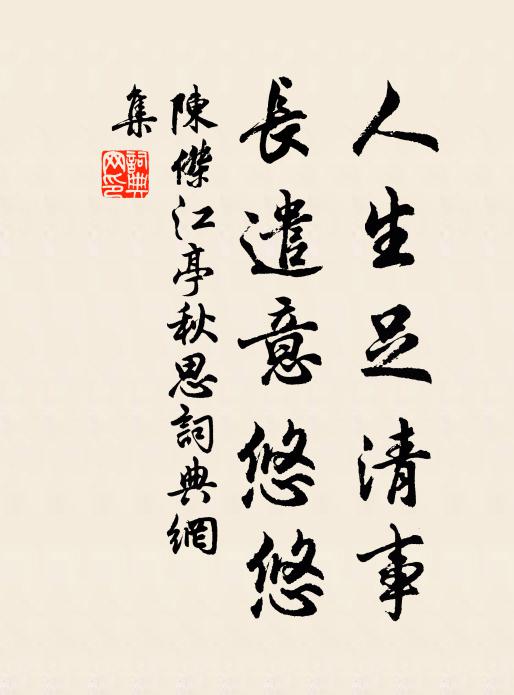 人生足清事
長遣意悠悠
陳傑江亭秋思詞典網
集
詞典网印